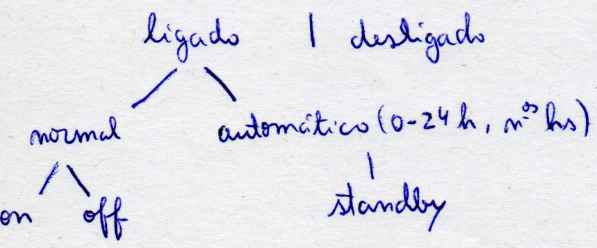 ligado | desligado
normal automático (0-24 h, nºs hs)
on off standby